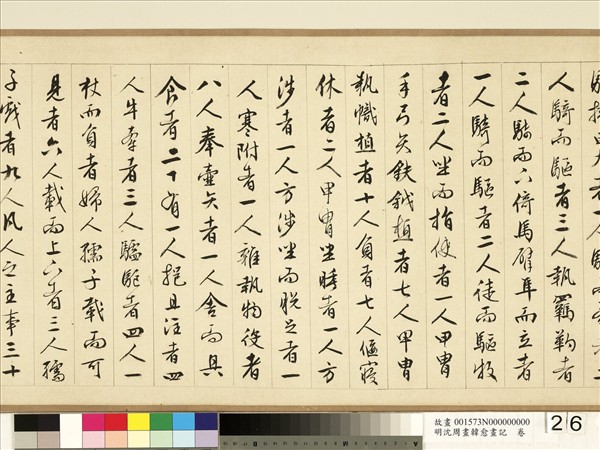 人騎而驅者三人執羈靮者
二人騎而下倚馬臂隼而立者
一人騎而驅者二人徒而驅牧
者二人坐而指使者一人甲冑
手弓矢鈇鉞植者七人甲冑
執幟植者十人負者七人偃寢
休者二人甲冑坐睡者一人方
涉者一人方涉坐而脫足者一
人寒附者一人雜執物役者
八人奉壺矢者一人舍而具
食者二十有一人挹且注者四
人牛牽者三人驢驅者四人一
杖而負者婦人孺子載而可
見者六人載而上下者三人孺
子戲者九人凡人之主事三十
故畫 001573N000000000
明沈周畫韓愈畫記 卷
26